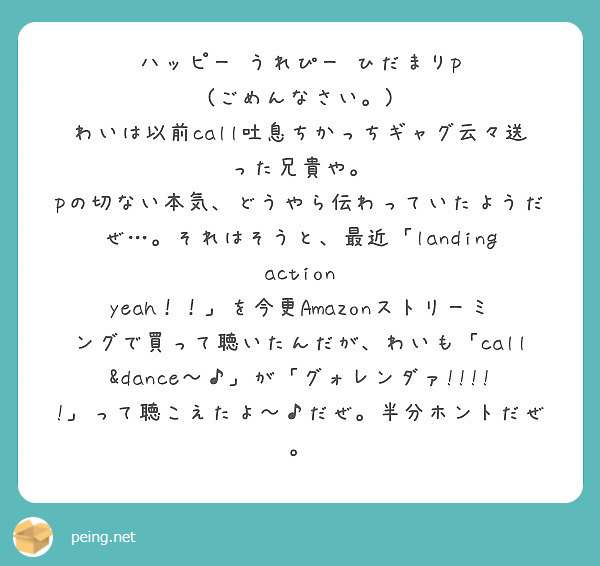 ハッピー うれぴー ひだまりP
(ごめんなさい。)
わいは以前call吐息ちかっちギャグ云々送
った兄貴や。
Pの切ない本気、どうやら伝わっていたようだ
ぜ…。それはそうと、最近「landing
action
yeah！！」を今更Amazonストリーミ
ングで買って聴いたんだが、わいも「call
&dance〜♪」が「グォレンダァ!!!!
!」って聴こえたよ〜♪だぜ。半分ホントだぜ
。
peing.net